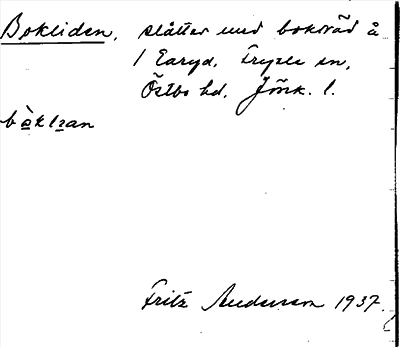 Bokliden, slåtter med bokträd å
1 Earyd, Tryele sn,
Östbo hd. Jönk. l.
bòklıan
Fritz Anderson 1937.